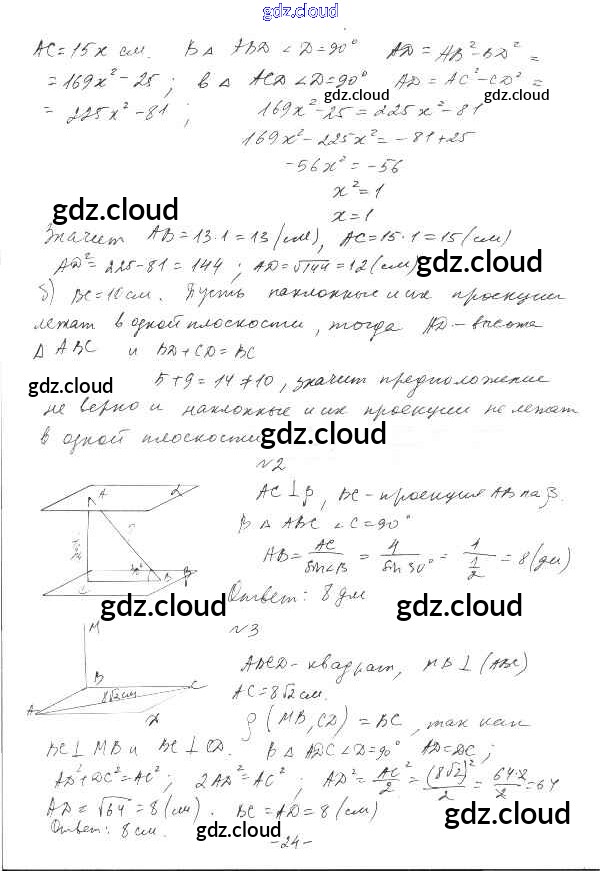 gdz.cloud
AC = 15x см. В △ ABD ∠D = 90° AD = AB² - BD² =
= 169x² - 25; в △ ACD ∠D = 90° AD = AC² - CD² =
= 225x² - 81; 169x² - 25 = 225x² - 81
gdz.cloud gdz.cloud
169x² - 225x² = -81 + 25
-56x² = -56
x² = 1
x = 1
gdz.cloud
Значит AB = 13·1 = 13 (см), AC = 15·1 = 15 (см)
AD² = 225 - 81 = 144; AD = √144 = 12 (см)
gdz.cloud
б) BC = 10 см. Пусть наклонные и их проекции
лежат в одной плоскости, тогда AD - высота
△ ABC и BD + CD = BC
gdz.cloud
5 + 9 = 14 ≠ 10, значит предположение
не верно и наклонные и их проекции не лежат
в одной плоскости
gdz.cloud
№2
A α
AC ⊥ β, BC - проекция AB на β.
В △ ABC ∠C = 90°
AB = AC/sin∠B = 4/sin 30° = 1/(1/2) = 8 (дм)
C B β
Ответ: 8 дм
gdz.cloud gdz.cloud
№3
M
ABCD - квадрат, MB ⊥ (ABC)
B C
8√2 см
AC = 8√2 см.
A
ρ (MB, CD) = BC, так как
gdz.cloud
BC ⊥ MB и BC ⊥ CD. В △ ADC ∠D = 90° AD = DC;
AD² + DC² = AC²; 2AD² = AC²; AD² = AC²/2 = (8√2)²/2 = 64·2/2 = 64
AD = √64 = 8 (см). BC = AD = 8 (см)
gdz.cloud gdz.cloud
Ответ: 8 см.
-24-